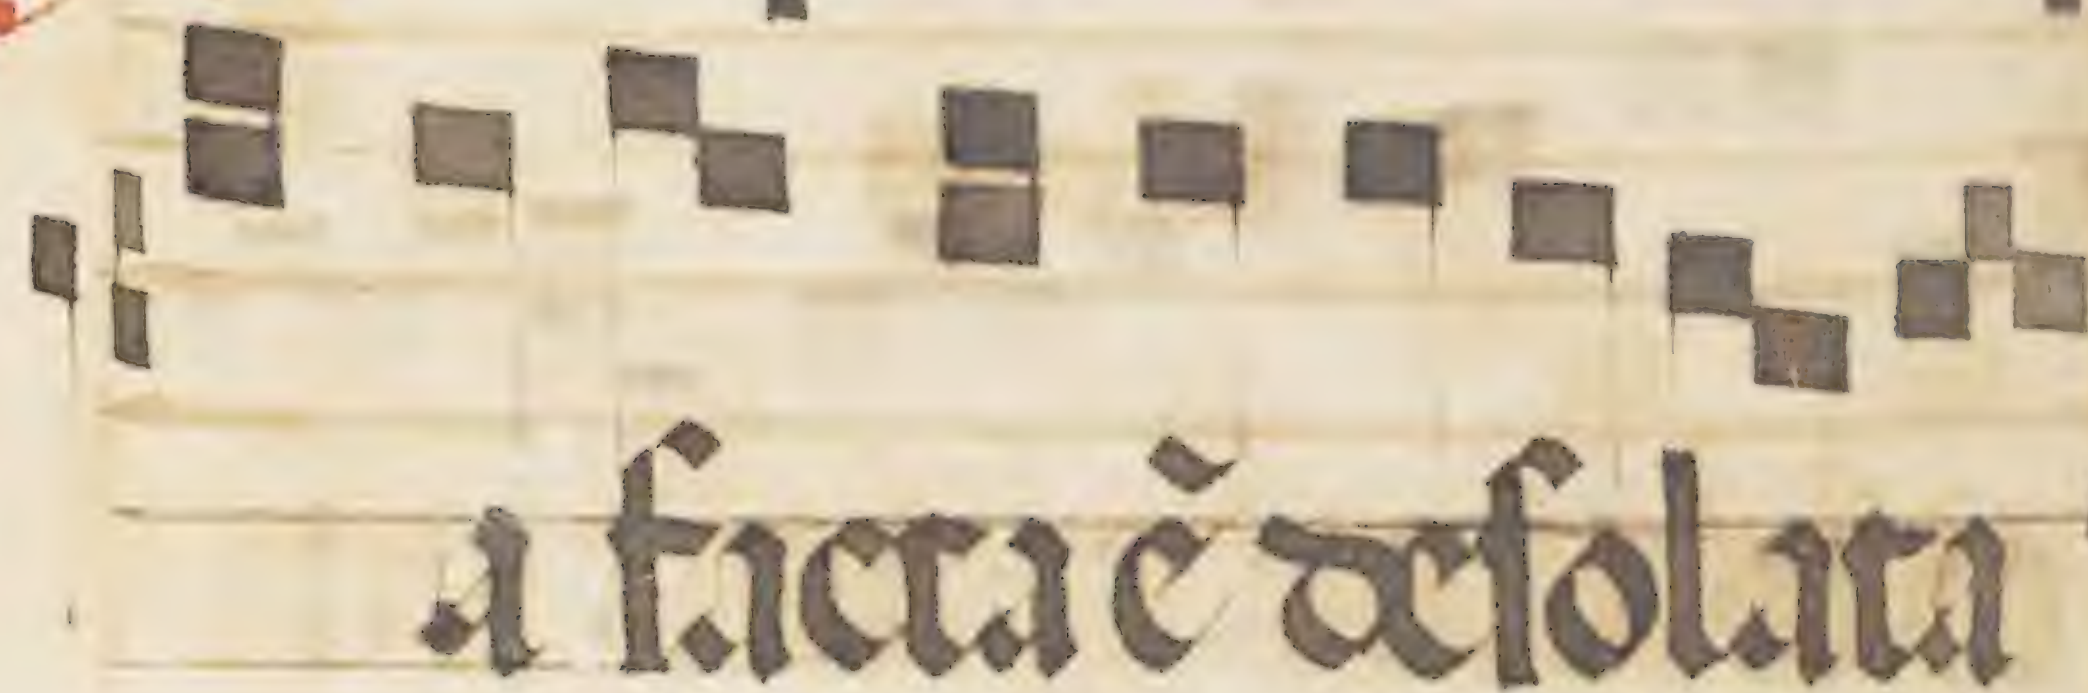 a facta ē desolata